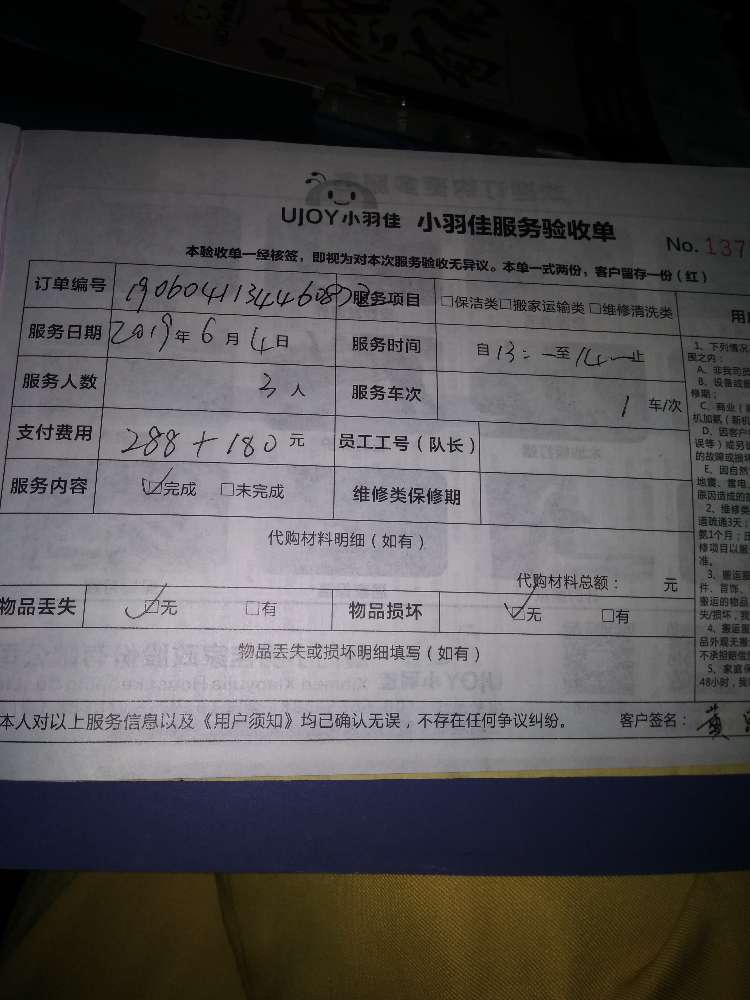 UJOY小羽佳 小羽佳服务验收单
No. 137
本验收单一经核签，即视为对本次服务验收无异议。本单一式两份，客户留存一份（红）
订单编号 服务项目 □保洁类□搬家运输类□维修清洗类
服务日期 2019年6月4日 服务时间 自13:一至14一止
服务人数 3人 服务车次 1车/次
支付费用 288+180元 员工工号（队长）
服务内容 ☑完成 □未完成 维修类保修期
代购材料明细（如有）
代购材料总额： 元
物品丢失 ☑无 □有 物品损坏 ☑无 □有
物品丢失或损坏明细填写（如有）
本人对以上服务信息以及《用户须知》均已确认无误，不存在任何争议纠纷。 客户签名：黄
用户
1、下列情况
围之内：
A、非我司员
B、设备或
修期；
C、商业（
机加氟（新机
D、因客户
误等）或另
的故障或损坏
E、因自然
地震、雷电、
原因造成的
2、维修类
道疏通3天；
氨1个月；
修项目以
准。
3、搬运
件、首饰、
搬运的物品
失/损坏，我
4、搬运
品外观无
不承担赔偿
5、家庭
48小时，我